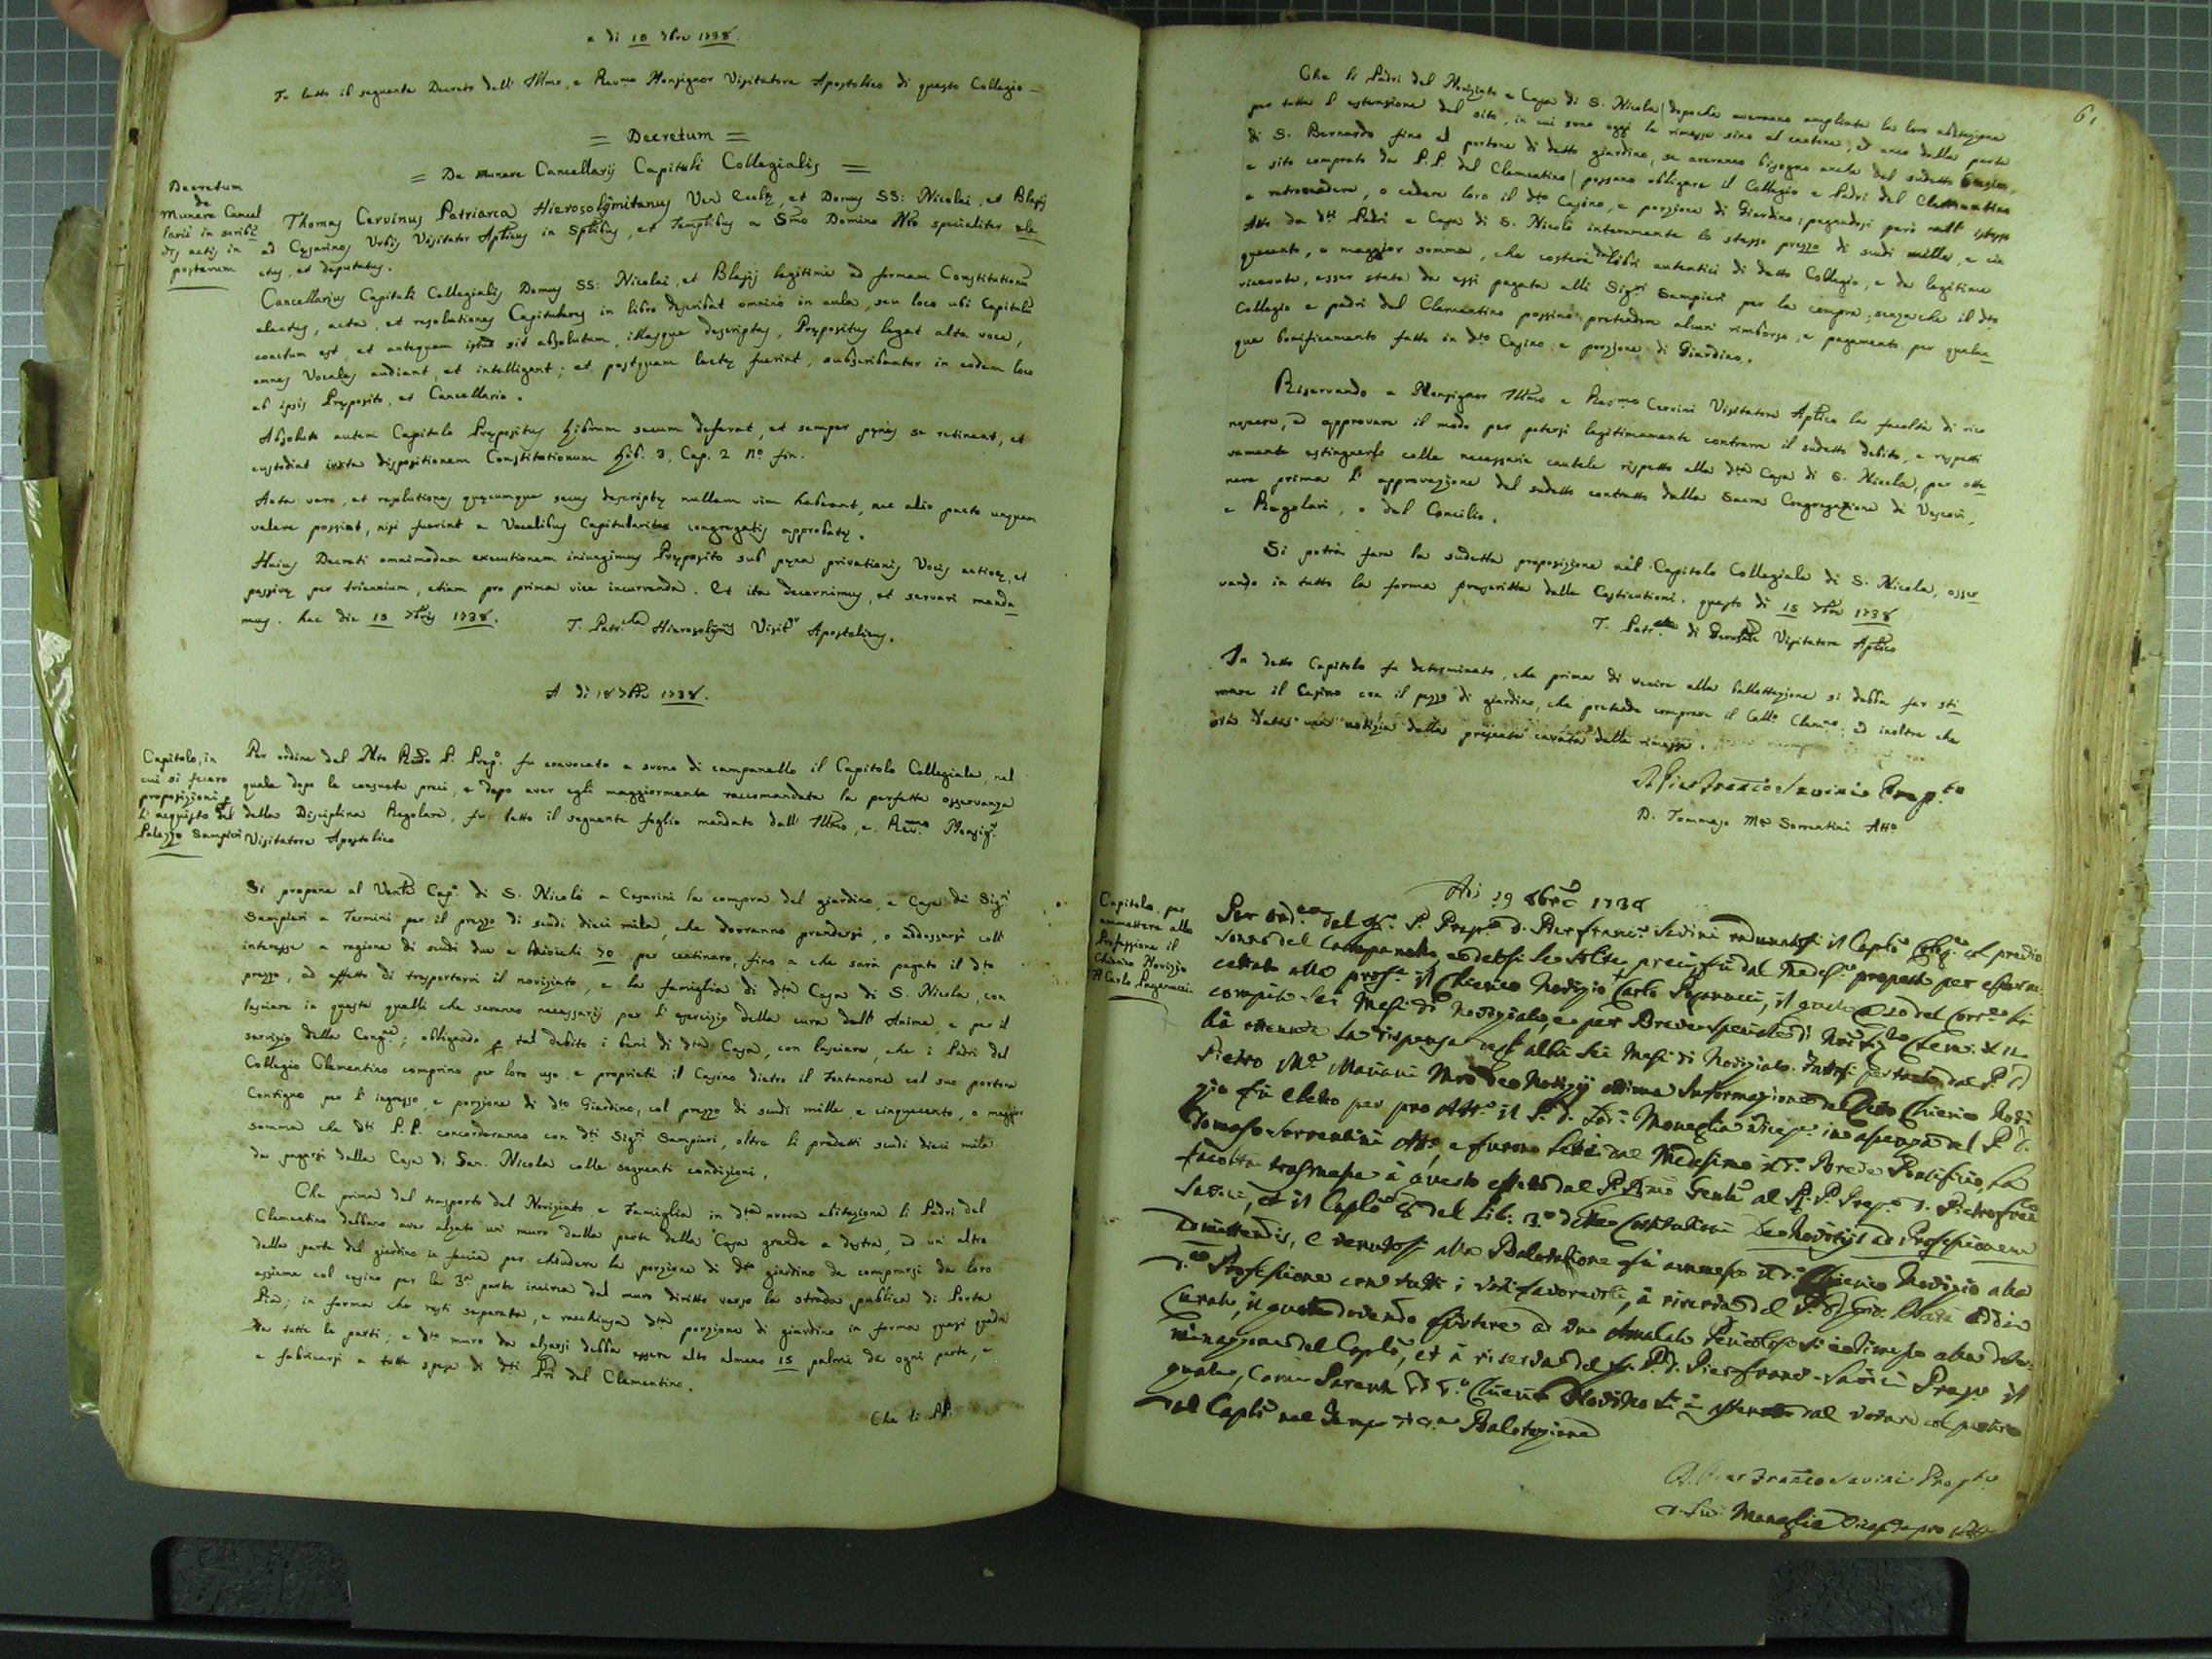 a di 18 7bre 1738.
Fu letto il seguente Decreto dell' Illmo, e Revmo Monsignor Visitatore Apostolico di questo Collegio
= Decretum =
= De munere Cancellarij Capituli Collegialis =
Decretum
de
Munere Cancel
larii in scribē
dis actis in
posterum
Thomas Cervinus Patriarca Hierosolymitanus Ven Eccłę, et Domus SS: Nicolai, et Blasij
ad Cęsarinos Urbis Visitator Apłicus in Splibus, et Templibus a Smo Domino Nro specialiter ele
ctus, et deputatus.
Cancellarius Capituli Collegialis Domus SS: Nicolai, et Blasij legitimè ad formam Constitutionū
electus, acta, et resolutiones Capitulares in libro describat omninò in aula, seu loco ubi Capitulū
coactum est, et antequam istud sit absolutum, illasque descriptas, Prępositus legat alta voce,
omnes Vocales audiant, et intelligant; et postquam lectę fuerint, subscribantur in eodem loco
ab ipsis Pręposito, et Cancellario.
Absoluto autem Capitulo Prępositus Librum secum deferat, et semper penes se retineat, et
custodiat iuxta dispositionem Constitutionum Lib. 3, Cap. 2 no. fin.
Acta vero, et resolutiones quęcumque secus descriptę nullam vim habeant, nec alio pacto unquam
valere possint, nisi fuerint a Vocalibus Capitulariter congregatis approbatę.
Huius Decreti omnimodam executionem iniungimus Pręposito sub pęna privationis Vocis activę, et
passivę per triennium, etiam pro prima vice incurrenda. Et ita decernimus, et servari manda
mus. hac die 18 7bris 1738. T. Patrcha Hierosolymus Visitr Apostolicus.
A di 18 7bre 1738.
Capitolo, in
cui si fecero
proposizioni p
l' acquisto del
Palazzo Sampieri
Per ordine del Mto Rdo P. Prepo. fu convocato a suono di campanello il Capitolo Collegiale, nel
quale dopo le consuete preci, e dopo aver egli maggiormente raccomandata la perfetta osservanza
della Disciplina Regolare, fu letto il seguente foglio mandato dall' Illmo, e Revmo Monsigr
Visitatore Apostolico
Si propone al Venble Capo di S. Nicolò a Cesarini la compra del giardino, e Casa dei Sigri
Sampieri a Termini per il prezzo di scudi dieci mila, che dovranno prendersi, o addossarsi coll'
interesse a ragione di scudi due e baiochi 70 per centinaro, fino a che sarà pagato il dto
prezzo, ad effetto di trasportarvi il noviziato, e la famiglia di dta Casa di S. Nicola, con
lasciare in questa quelli che saranno necessarij per l' esercizio della cura dell' Anime, e per il
servizio della Congne; obligando p tal debito i beni di dta Casa, con lasciare, che i Padri del
Collegio Clementino comprino per loro uso, e proprietà il Casino dietro il Fontanone col suo portone
Contiguo per l' ingresso, e porzione di dto Giardino, col prezzo di scudi mille, e cinquecento, o maggior
somma che dti P.P. concorderanno con dti Sigri Sampieri, oltre li predetti scudi dieci mila
da pagarsi dalla Casa di San. Nicola colle seguenti condizioni.
Che prima del trasporto del Noviziato, e Famiglia in dta nuova abitazione li Padri del
Clementino debbano aver alzato un' muro dalla parte della Casa grande a destra, ed un' altro
dalla parte del giardino in faccia per chiudere la porzione di dto giardino da comprarsi da loro
assieme col casino per la 3a parte incirca del muro diritto verso la strada publica di Porta
Pia; in forma che resti separata, e racchiusa dta porzione di giardino in forma quasi quadra
da tutte le parti; e dto muro da alzarsi debba essere alto almeno 15 palmi da ogni parte, e
e fabricarsi a tutte spese di dti Pri del Clementino.
Che li PP.
61
Che li Padri del Noviziato e Casa di S. Nicola (dopoche averanno ampliata la loro abitazione
per tutta l' estensione del sito, in cui sono oggi le rimesse sino al cantone, ed anco dalla parte
di S. Bernardo fino al portone di detto giardino, se averanno bisogno anche del sudetto Casino,
e sito comprato da P.P. del Clementino) possano obligare il Collegio e Padri del Clementino
a retrovendere, o cedere loro il dto Casino, e porzione di Giardino; pagandosi però nell' istesso
Atto da dti Padri e Casa di S. Nicolò interamente lo stesso prezzo di scudi mille, e cin
quecento, o maggior somma, che costerà da libri autentici di detto Collegio, e da legitime
ricevute, esser stata da essi pagata alli Sigri Sampieri per la compra, senza che il dto
Collegio e padri del Clementino possino pretendere alcun rimborso, e pagamento per qualun
que bonificamento fatto in dto Casino, e porzione di Giardino.
Riservando a Monsignor Illmo e Revmo Cervini Visitatore Aplico la facoltà di rico
noscere, ed approvare il modo per potersi legitimamente contrarre il sudetto debito, e respetti
vamente estinguerlo colle necessarie cautele rispetto alla dta Casa di S. Nicola, per otte
nere prima l' approvazione del sudetto contratto dalla Sacra Congregazione di Vescovi,
e Regolari, o del Concilio.
Si potrà fare la sudetta proposizione nel Capitolo Collegiale di S. Nicola, osser
vando in tutto la forma prescritta dalle Costicutioni. questo dì 18 7bre 1738
T. Patrcha di Gerusme Visitatore Aplico
In detto Capitolo fu determinato, che prima di venire alla ballottazione si debba far sti
mare il Casino con il pezzo di giardino, che pretende comprare il Collo Clemno; ed inoltre che
sia data una notizia della presente entrata delle rimesse.
D. Pier Franco Savini Prepto
D. Tommaso Ma Sorrentini Atto
Adì 29 8bre 1738
Capitolo, per
ammettere alla
Professione il
Chierico Novizzo
D Carlo Paganucci
Per ordne del P. Prepo D. Pierfranco Savini radunatosi il Caplo Collegle col previo
suono del Campanello, e dettesi le solite preci, fù dal Medesmo proposto per esser ac
cettato alla profne il Chierico Novizio Carlo Paganucci, il quale
compiti sei Mesi di Noviziato, e per Breve speciale di
hà ottenuta la dispenza degl' altri sei Mesi di Noviziato. Intesasi pertanto dal P. D.
Pietro Ma Mariani Mro de Novizij ottima Informazione del detto Chierico Novi
zio fù eletto per pro Atto il P. D. Moneglia Vicepo in assenza del P. D.
Tomaso Sorrentini Atto, e furono letti dal Medesimo il do Breve Pontificio, la
facoltà trasmessa à questo effetto dal P. Rmo Genle al P. Prepo D. Pietrofrco
Savini, et il Caplo 8 del Lib: 3o delle Costitutioni De Novitijs ad Professionem
admittendis, e venutosi alla Balotatione fù ammesso il do Chierico Novizio alla
da Professione con tutti i voti favorevoli, à riserva del P.
Curato, il quale dovendo assistere ad un Amalato Pericoloso si rimesse alla deter
minazione del Caplo, et à riserva del P. D. Pierfranco Savini Prepo il
quale, come Parente del do Chierico Novizio si è astenuto dal votare
al Caplo nel tempo di da Balotazione
D. Pier Franco Savini Propto
Moneglia Vicepo pro Atto